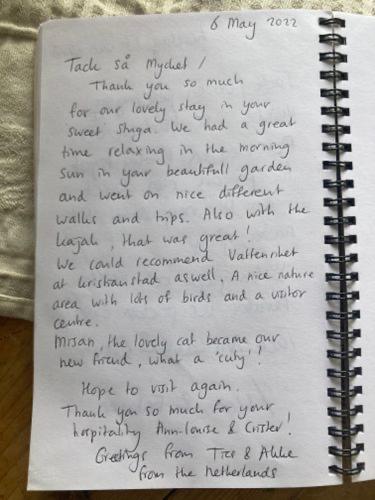 6 May 2022
Tack så Mycket /
Thank you so much
for our lovely stay in your
sweet Stuga. We had a great
time relaxing in the morning
sun in your beautifull garden
and went on nice different
walks and trips. Also with the
kajak, that was great!
We could recommend Vattenriket
at Kristianstad aswell. A nice nature
area with lots of birds and a visitor
centre.
Misan, the lovely cat became our
new friend, what a 'cuty'!
Hope to visit again.
Thank you so much for your
hospitality Ann-Louise & Crister!
Greetings from &
from the Netherlands